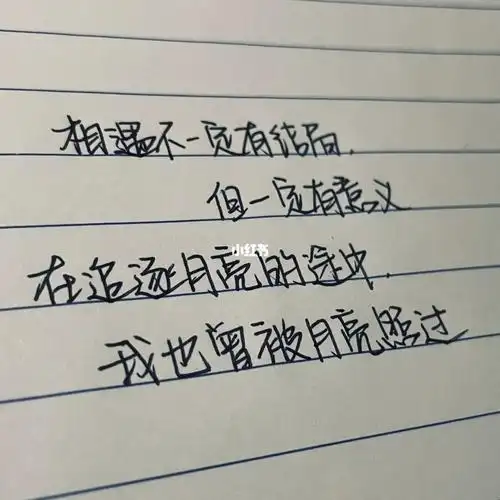 相遇不一定有结局.
但一定有意义
小红书
在追逐月亮的途中.
我也曾被月亮照过